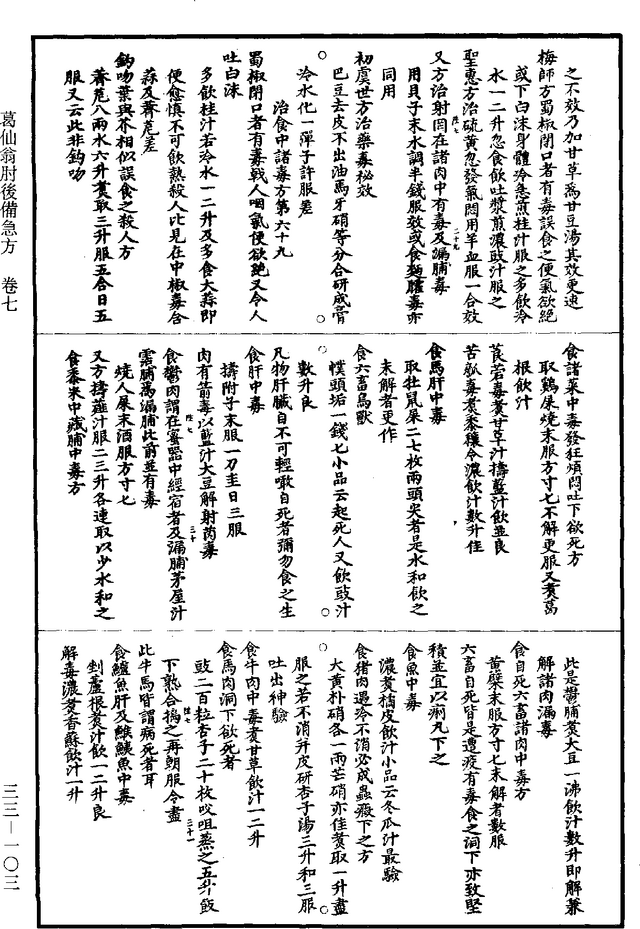 之不效乃加甘草為甘豆湯其效更速
梅師方蜀椒閉口者有毒誤食之便氣欲絕
或下白沫身體冷急煎桂汁服之多飲冷
水一二升忽食飲吐漿煎濃豉汁服之
聖惠方治硫黃忽發氣悶用羊血服一合效
又方治射罔在諸肉中有毒及漏脯毒
用貝子末水調半錢服效或食麵臛毒亦
同用
初虞世方治藥毒秘效
巴豆去皮不出油馬牙硝等分合研成膏
冷水化一彈子許服差
治食中諸毒方第六十九
蜀椒閉口者有毒戟人咽氣便欲絕又令人
吐白沫
多飲桂汁若冷水一二升及多食大蒜即
便愈慎不可飲熱殺人比見在中椒毒含
蒜及薺苨差
鈎吻葉與芥相似誤食之殺人方
薺苨八兩水六升煑取三升服五合日五
服又云此非鈎吻
食諸菜中毒發狂煩悶吐下欲死方
取雞屎燒末服方寸七不解更服又煑葛
根飲汁
莨菪毒煑甘草汁擣藍汁飲並良
苦瓠毒煑黍穰令濃飲汁數升佳
食馬肝中毒
取牡鼠屎二七枚兩頭尖者是水和飲之
未解者更作
食六畜鳥獸
幞頭垢一錢七小品云起死人又飲豉汁
數升良
凡物肝臟自不可輕噉自死者彌勿食之生
食肝中毒
擣附子末服一刀圭日三服
肉有箭毒以藍汁大豆解射罔毒
食鬱肉謂在蜜器中經宿者及漏脯茅屋汁
霑脯為漏脯此前並有毒
燒人屎末酒服方寸七
又方擣薤汁服二三升各連取以少水和之
食黍米中藏脯中毒方
此是鬱脯煑大豆一沸飲汁數升即解兼
解諸肉漏毒
食自死六畜諸肉中毒方
黃蘗末服方寸七未解者數服
六畜自死皆是遭疫有毒食之洞下亦致堅
積並宜以痢丸下之
食魚中毒
濃煑橘皮飲汁小品云冬瓜汁最驗
食猪肉遇冷不消必成蟲癥下之方
大黃朴硝各一兩芒硝亦佳煑取一升盡
服之若不消并皮研杏子湯三升和三服
吐出神驗
食牛肉中毒煑甘草飲汁一二升
食馬肉洞下欲死者
豉二百粒杏子二十枚㕮咀蒸之五升飯
下熟合擣之再朝服令盡
此牛馬皆謂病死者耳
食鱸魚肝及鯸鮧魚中毒
剉蘆根煑汁飲一二升良
解毒濃煑香蘇飲汁一升
葛仙翁肘後備急方　卷七
三三－一〇三